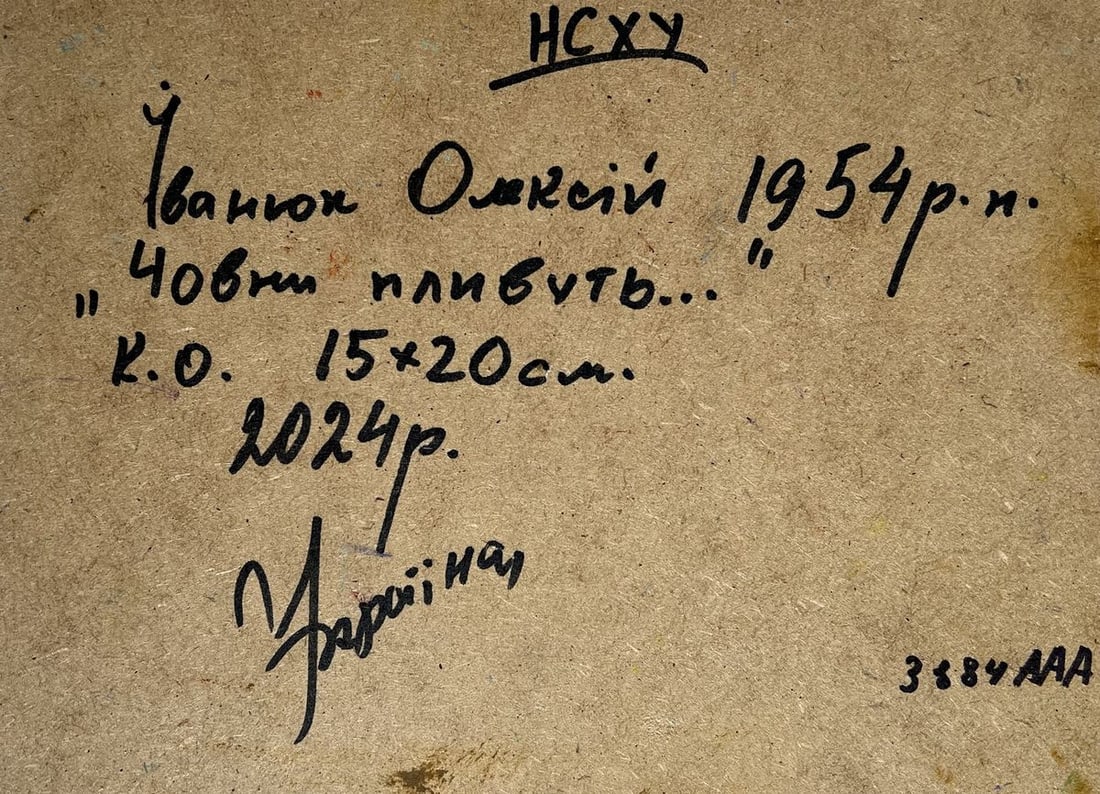 НСХУ
Іванюк Олексій 1954р.н.
„Човни пливуть..."
К.О. 15×20см.
2024р.
Україна
АААА